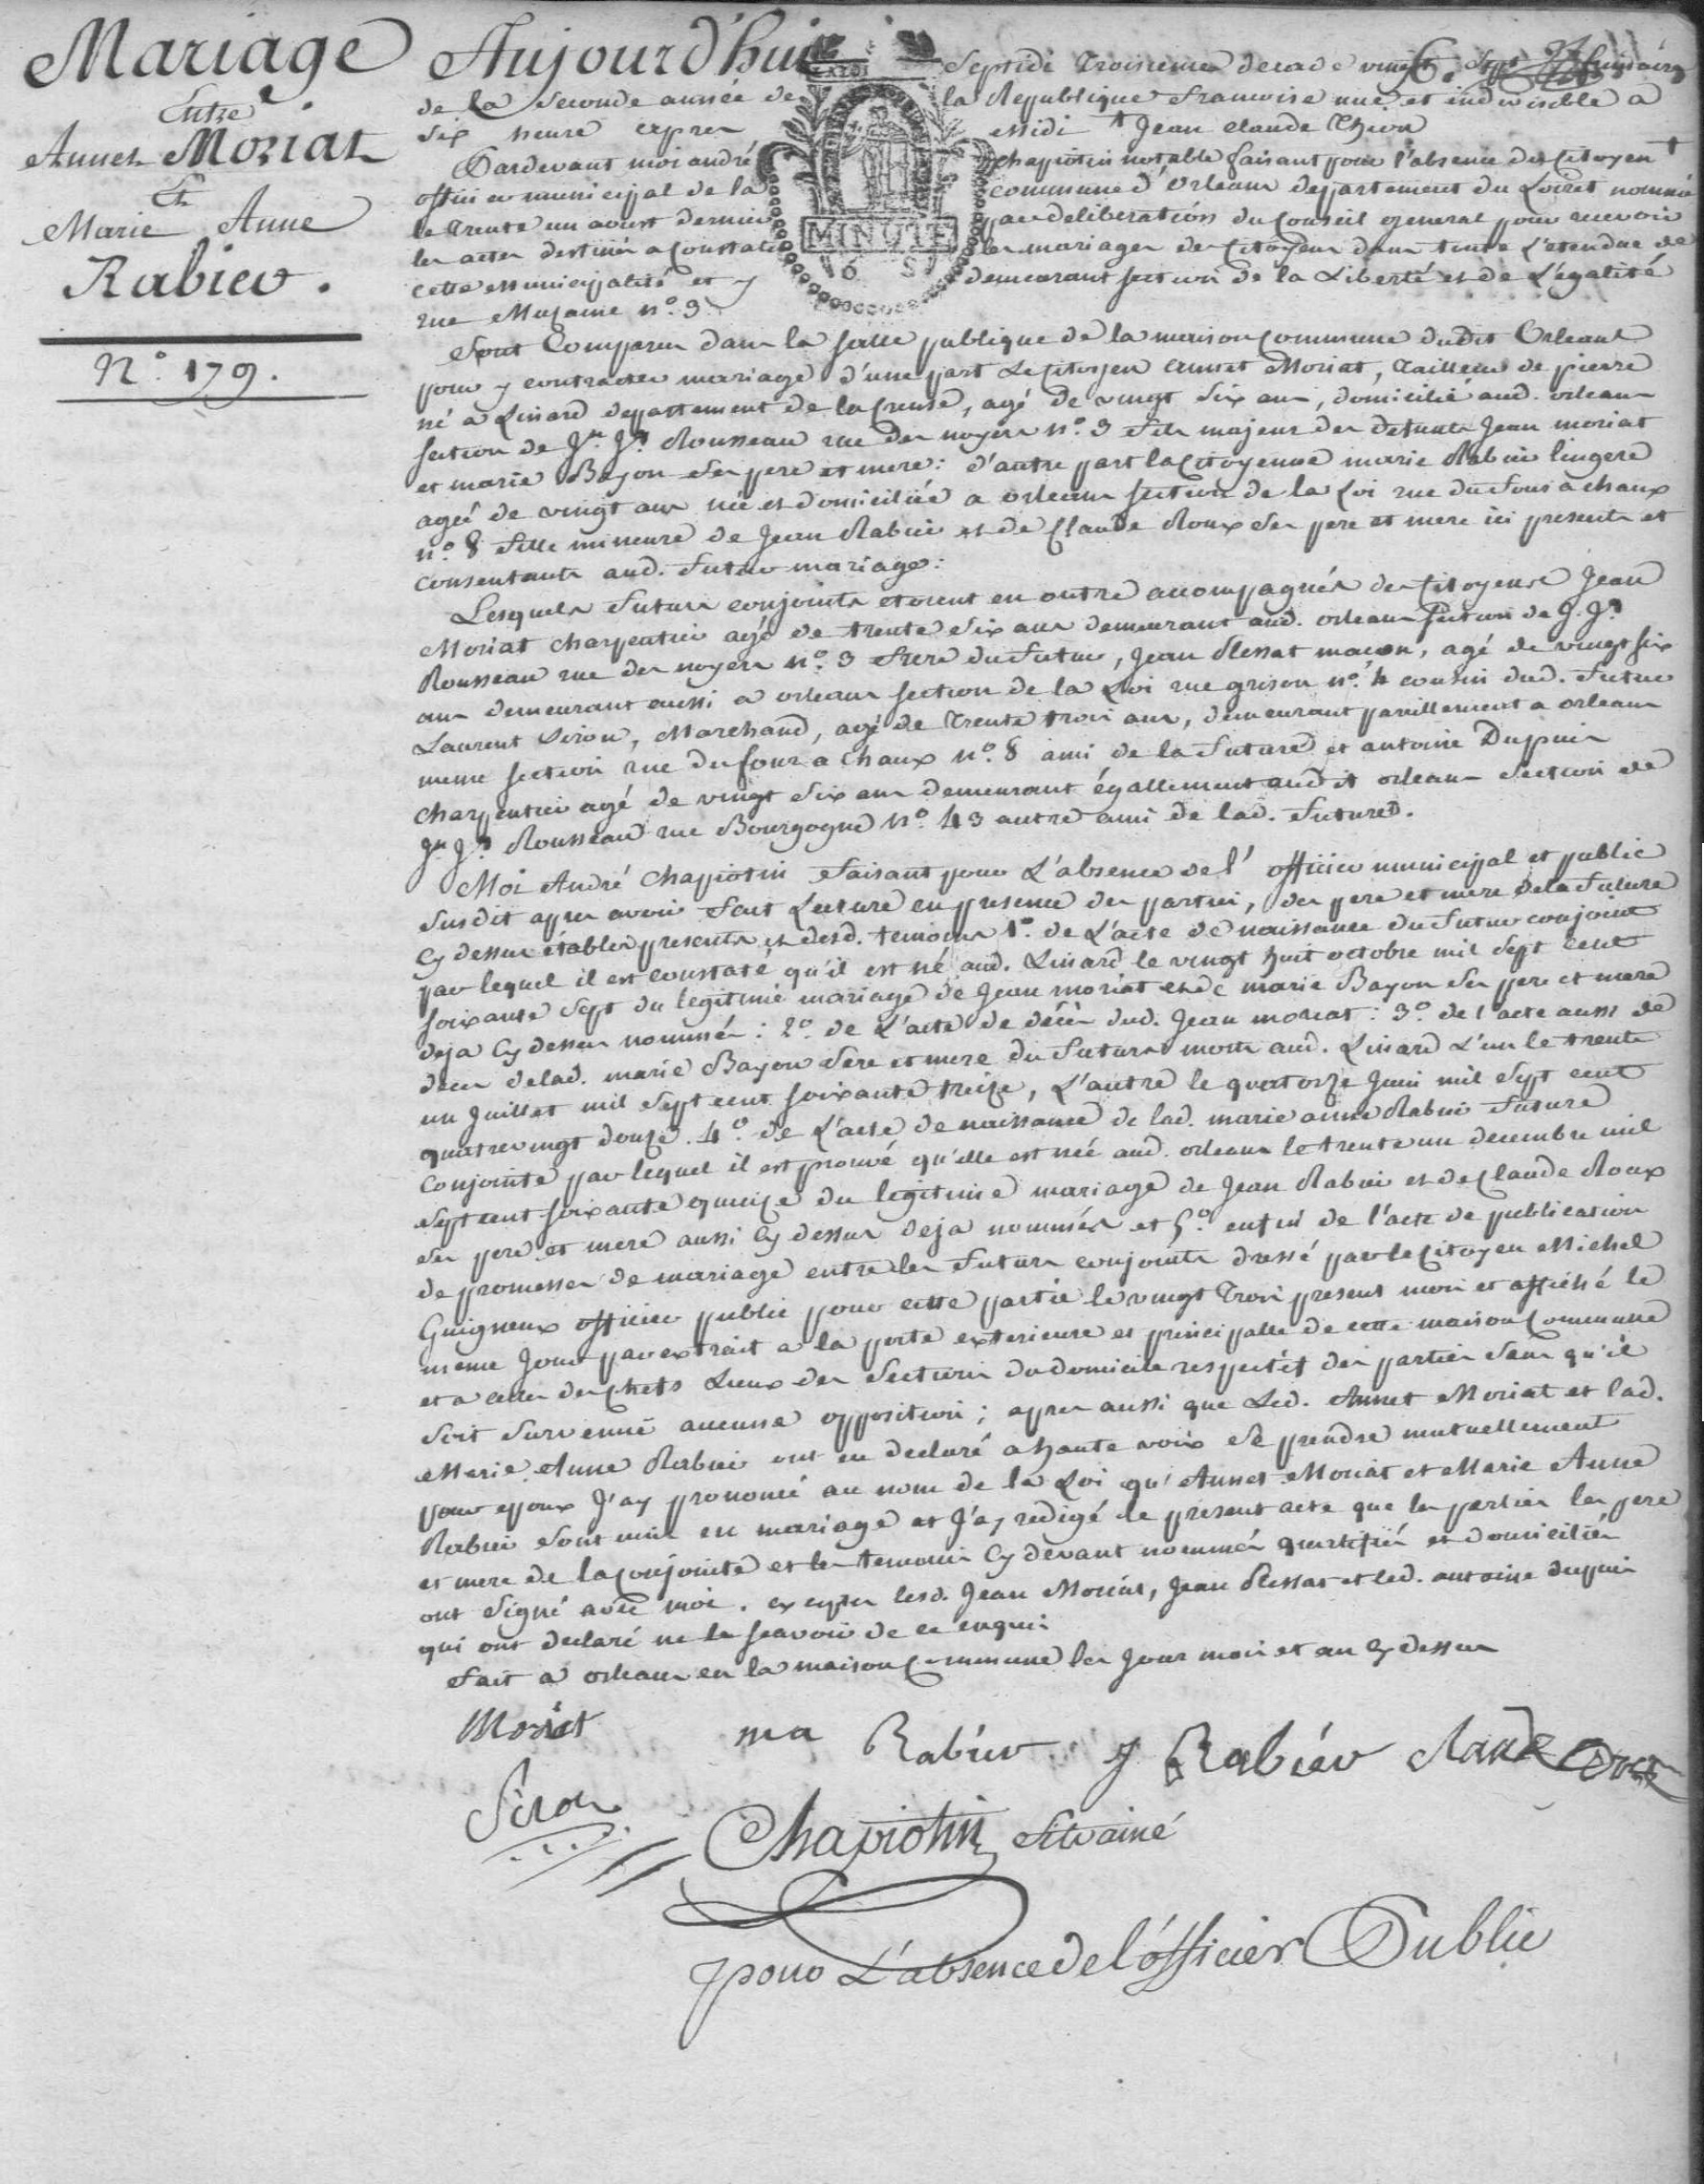 Mariage
Entre
Annet Moriat
Et
Marie Anne
Rabier.
N.° 179.
Aujourd'hui Septidi Troisieme decade vingt Sept frimaire
de la Seconde année de la Republique francoise une et indivisible a
Six heure apres midi + Jean Claude
Pardevant moi andré Chapiotin notable faisant pour l'absence du Citoyen +
officier municipal de la commune d'Orleans departement du Loiret nommé
le Trente un aoust dernier par deliberation du Conseil general pour recevoir
les actes destinés a Constater les mariages des Citoyens dans toute l'etendue de
cette municipalité et y demeurant section de la Liberté et de L'égalité
rue Mazarine n.° 3.
MINUTE
Sont Comparus dans la salle publique de la maison Commune dudit Orleans
pour y contracter mariage d'une part Le Citoyen Annet Moriat, Tailleur de pierre
né a Linard departement de la Creuse, agé de vingt Six ans, domicilié aud. orleans
section de Jn. Jq. Rousseau rue des noyers n.° 3 fils majeur des defunts Jean moriat
et marie Bayon Ses pere et mere: d'autre part la Citoyenne marie Rabier lingere
ageé de vingt ans née et domiciliée a orleans section de la Loi rue du four a chaux
n.° 8 fille mineure de Jean Rabier et de Claude Roux Ses pere et mere ici presents et
consentants aud. futur mariage:
Lesquels futurs conjoints etoient en outre accompagnés des Citoyens Jean
Moriat charpentier agé de trente Six ans demeurant aud. orleans section de J. Jq.
Rousseau rue des noyers n.° 3 frere du futur, Jean Plessat maçon, agé de vingt six
ans demeurant aussi a orleans section de la Loi rue grison n.° 4 cousin dud. futur
Laurent Siron, Marchand, agé de Trente trois ans, demeurant pareillement a orleans
meme section rue du four a Chaux n.° 8 ami de la future et antoine Dupuis
charpentier agé de vingt Six ans demeurant égallement audit orleans Section de
Jn Jq. Rousseau rue Bourgogne n.° 43 autre ami de lad. future.
Moi André Chapiotin faisant pour L'absence de l'officier municipal et public
Susdit apres avoir fait Lecture en presence des parties, des pere et mere de la future
Cy dessus établis presents et desd. temoins 1.° de L'acte de naissance du futur conjoint
par lequel il est constaté qu'il est né aud. Linard le vingt huit octobre mil Sept cent
soixante Sept du legitime mariage de Jean moriat et de marie Bayon Ses pere et mere
deja Cy dessus nommés: 2.° de L'acte de décès dud. Jean moriat: 3.° de l'acte aussi de
deces de lad. marie Bayon Pere et mere du futur morts aud. Linard L'un le trente
un Juillet mil Sept cent soixante treize, L'autre le quatorze Juin mil Sept cent
quatrevingt douze. 4.° de L'acte de naissance de lad. marie anne Rabier future
Conjointe par lequel il est prouvé qu'elle est née aud. orleans le trente un decembre mil
Sept cent soixante quinze du legitime mariage de Jean Rabier et de Claude Roux
Ses pere et mere aussi Cy dessus deja nommés et 5.° enfin de l'acte de publication
de promesses de mariage entre les futurs conjoints dressé par le Citoyen Michel
Guigneux officier public pour cette partie le vingt Trois present mois et affiché le
meme Jour par extrait a la porte exterieure et principalle de cette maison Commune
et a celles des Chefs Lieux des Sections du domicile respectif des parties Sans qu'il
Soit Survenue aucune opposition; apres aussi que Led. Annet Moriat et lad.
Marie Anne Rabier ont eu declaré a haute voix Se prendre mutuellement
pour epoux J'ay prononcé au nom de la Loi qu'Annet Moriat et Marie Anne
Rabier Sont unis en mariage et J'ay redigé le present acte que les parties les pere
et mere de la Conjointe et les temoins Cy devant nommés qualifiés et domiciliés
ont Signé avec moi. excepter lesd. Jean Moriat, Jean Plessat et led. antoine dupuis
qui ont declaré ne le scavoir de ce enquis
Fait a orleans en la maison Commune les Jour mois et an Cy dessus
Moriat ma Rabier J Rabiér Claude
Siron Chapiotin
pour L'absence de l'officier Public